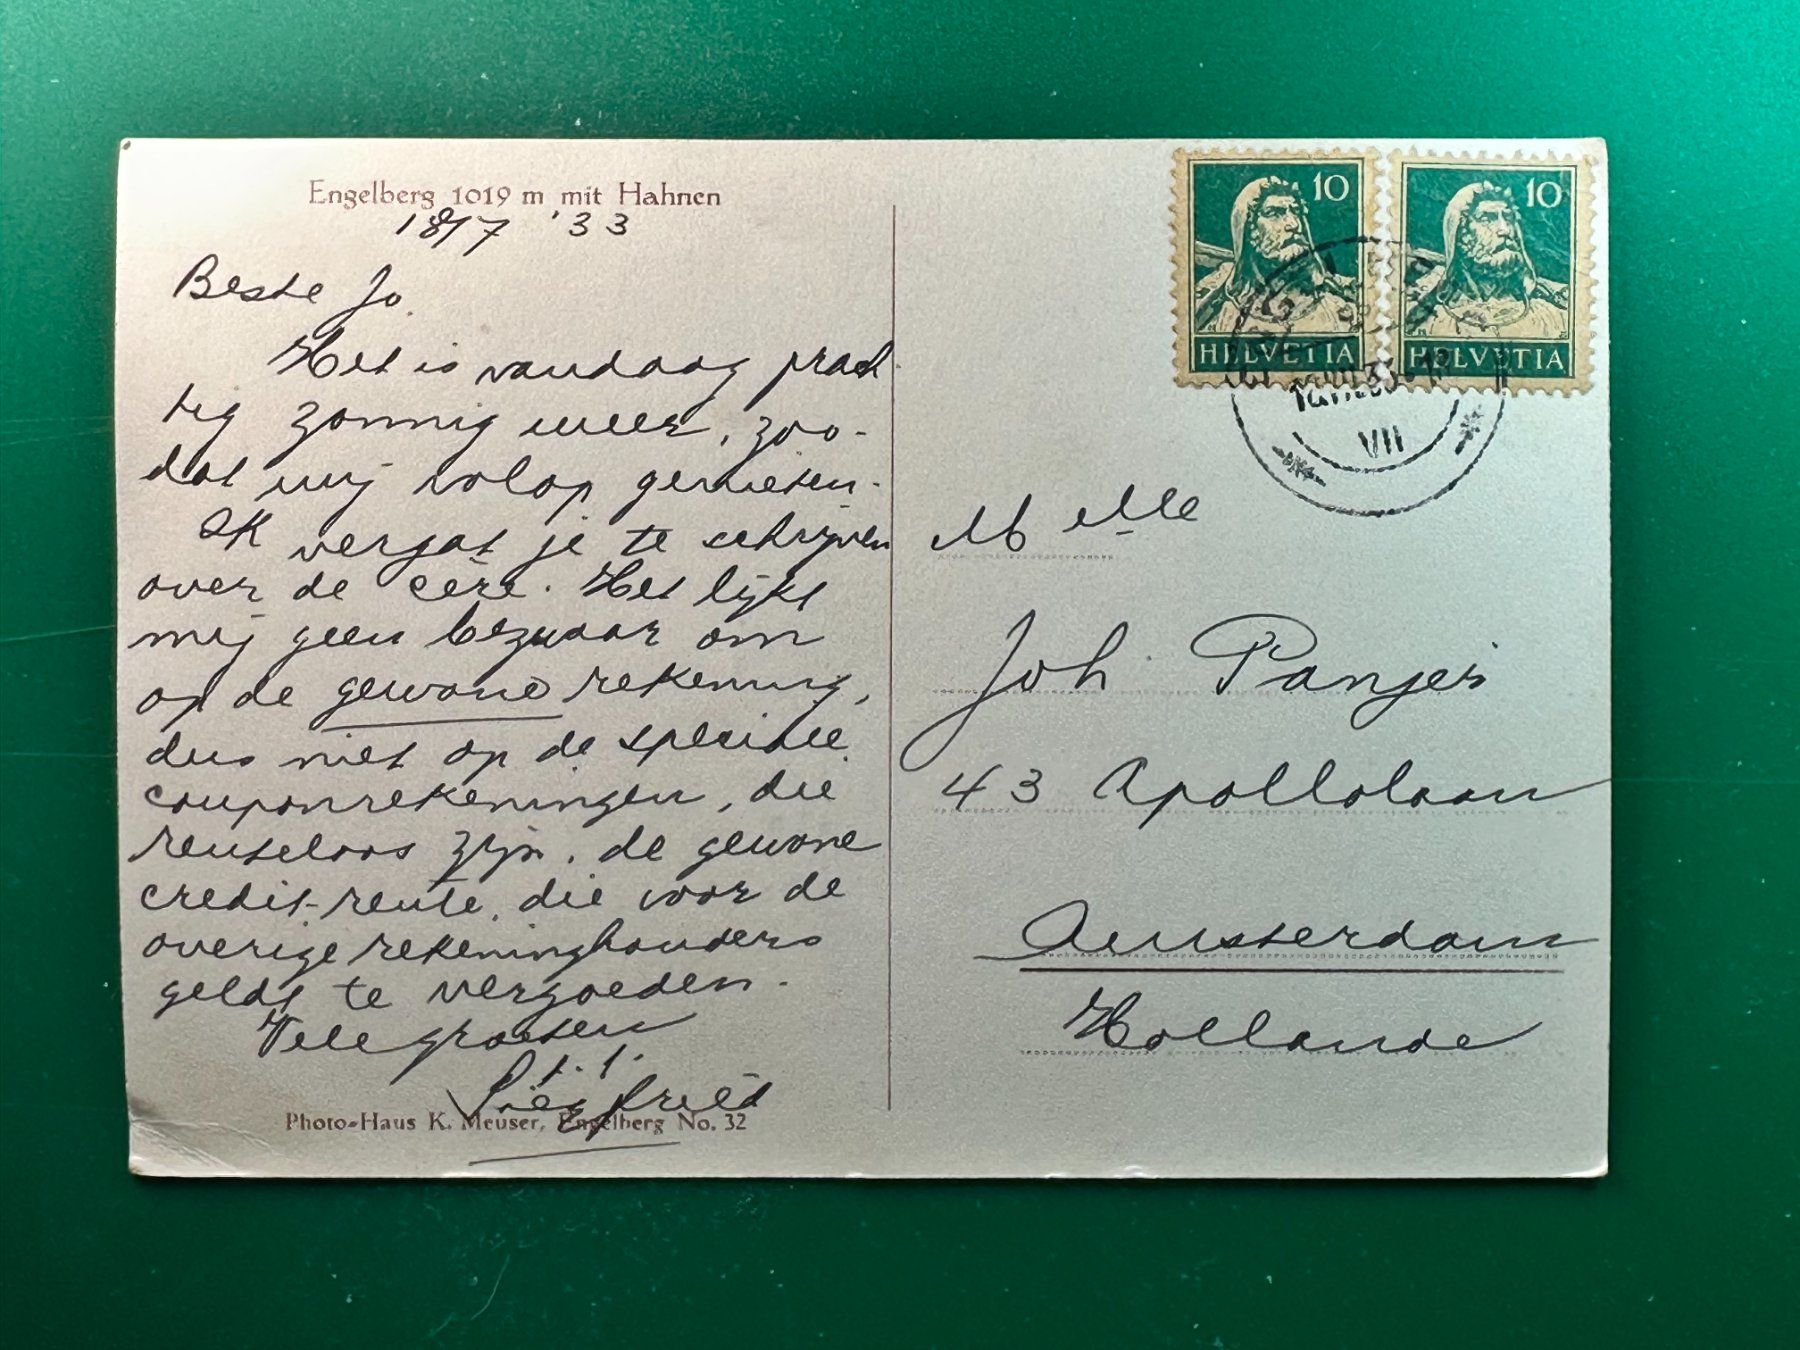 Engelberg 1019 m mit Hahnen
18/7 '33
Beste Jo
Het is vandaag prach
tig zonnig weer, zoo-
dat wij volop genieten.
Ik vergat je te schrijven
over de cére. Het lijkt
mij geen bezwaar om
op de gewone rekening,
dus niet op de speciale
couponrekeningen, die
renteloos zijn, de gewone
credit-rente, die voor de
overige rekeninghouders
geldt te vergoeden.
Vele groeten
t.t.
Siegfried
Photo-Haus K. Meuser, Engelberg No. 32
10
HELVETIA
10
HELVETIA
VII
M elle
Joh Panjer
43 Apollolaan
Amsterdam
Hollande